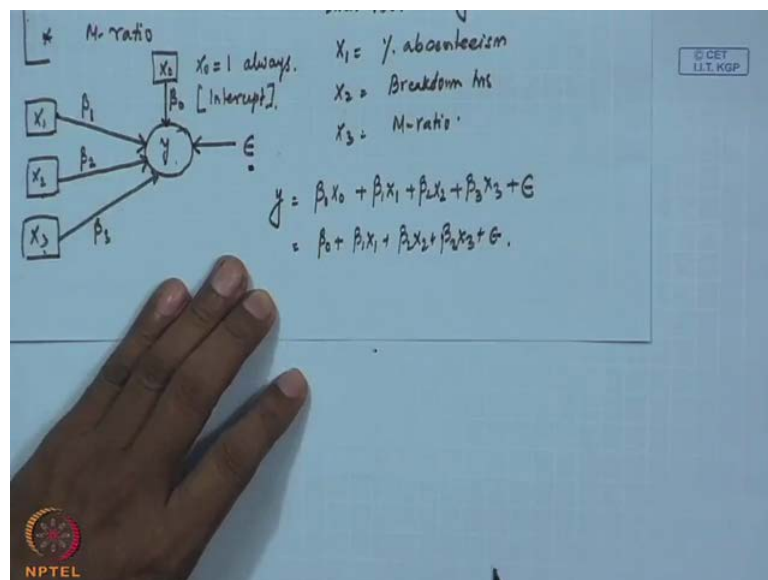 * M-ratio
X₀
X₀ = 1 always.
β₀
[Intercept].
X₁
β₁
X₂
β₂
X₃
β₃
y
ϵ
X₁ = % absenteeism
X₂ = Breakdown hrs
X₃ = M-ratio
y = β₀X₀ + β₁X₁ + β₂X₂ + β₃X₃ + ϵ
= β₀ + β₁X₁ + β₂X₂ + β₃X₃ + ϵ.
© CET
I.I.T. KGP
NPTEL